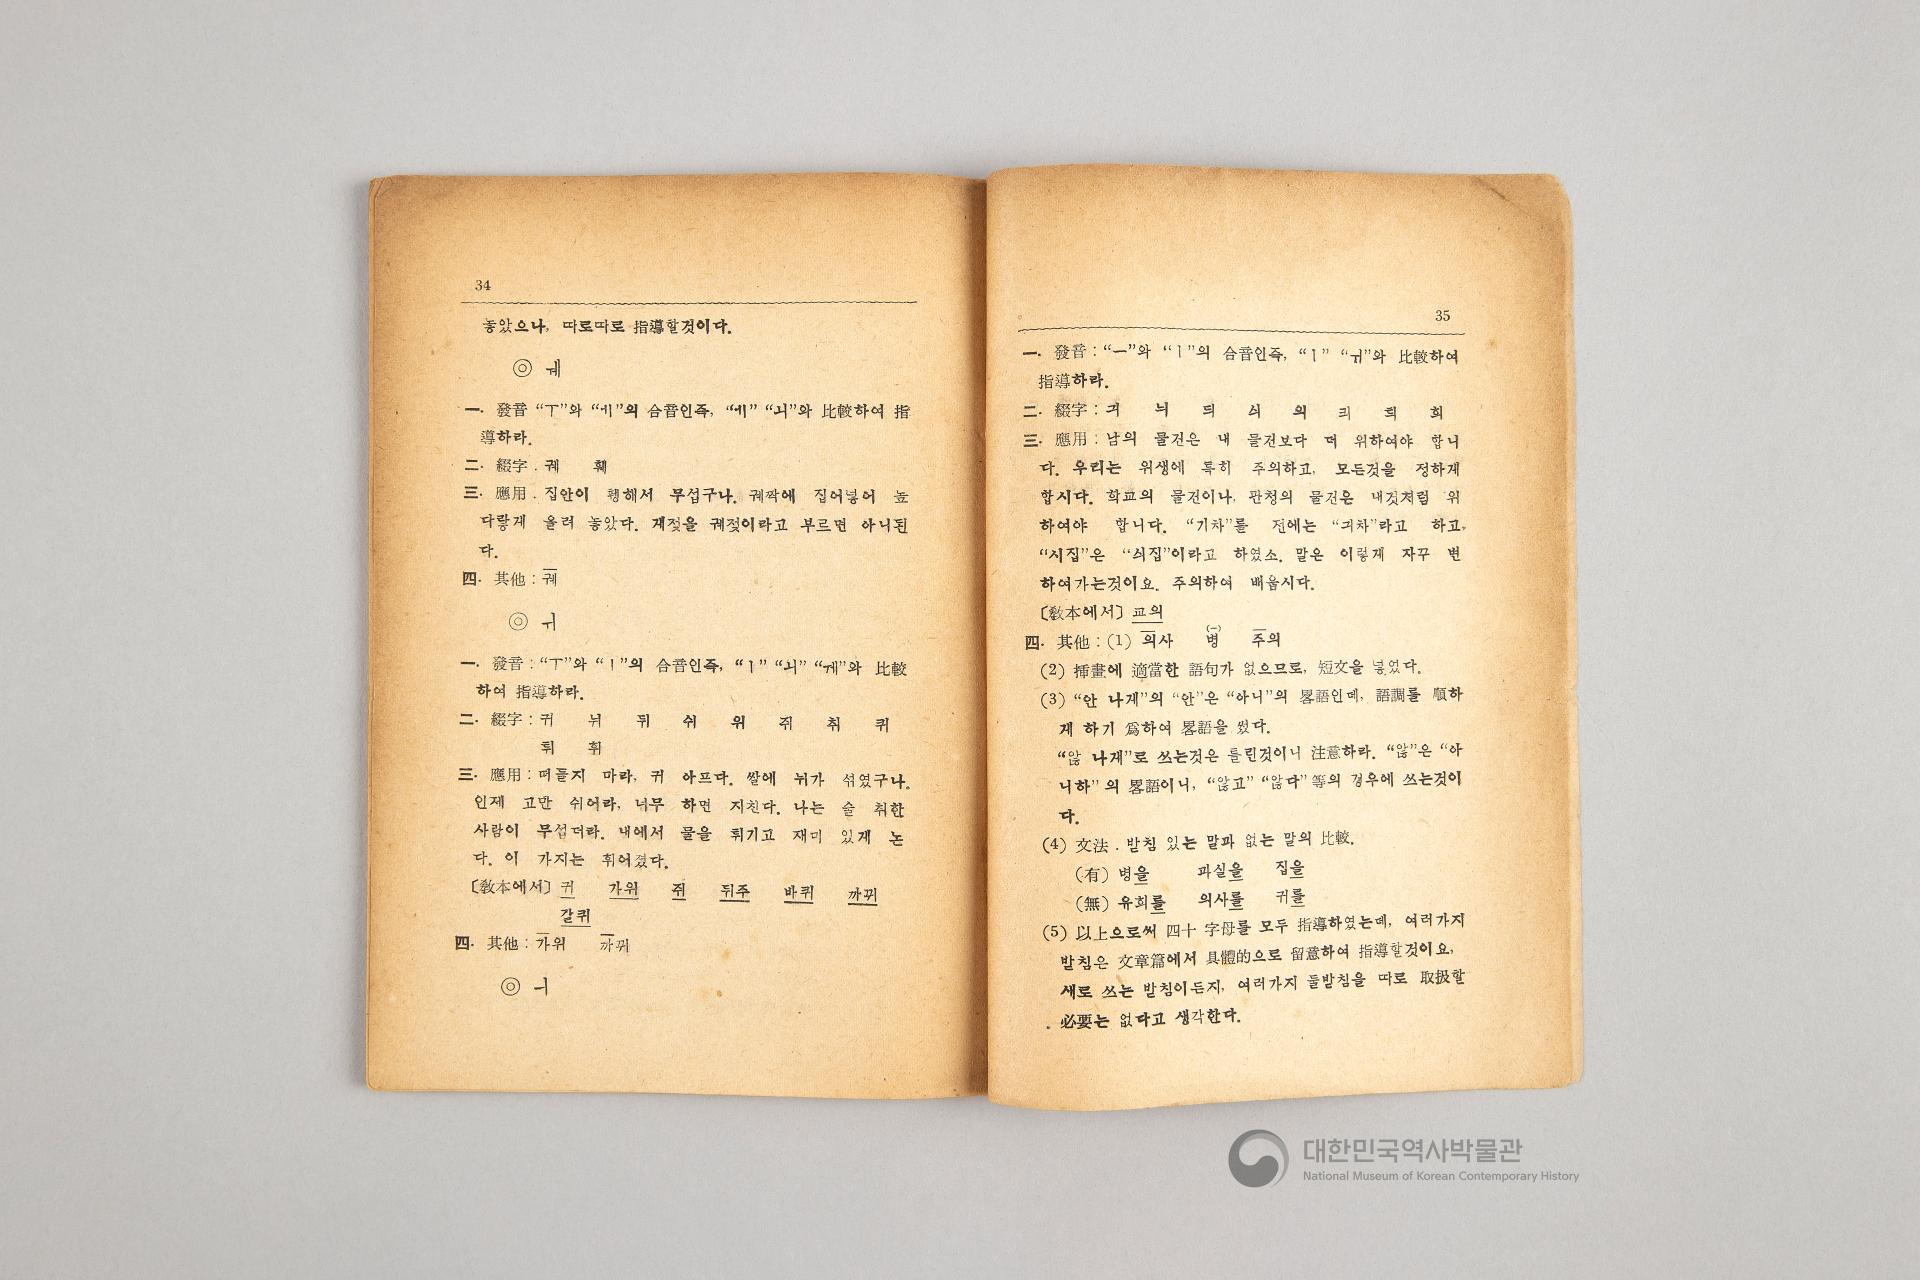 34
놓았으나, 따로따로 指導할것이다.
◎ ㅞ
一. 發音 “ㅜ”와 “ㅔ”의 合音인즉, “ㅔ” “ㅚ”와 比較하여 指
導하라.
二. 綴字 . 궤 훼
三. 應用 . 집안이 휑해서 무섭구나. 궤짝에 집어넣어 높
다랗게 올려 놓았다. 게젓을 궤젓이라고 부르면 아니된
다.
四. 其他 : 궤
◎ ㅟ
一. 發音 : “ㅜ”와 “ㅣ”의 合音인즉, “ㅣ” “ㅚ” “ㅞ”와 比較
하여 指導하라.
二. 綴字 : 귀 뉘 뒤 쉬 위 쥐 취 퀴
튀 휘
三. 應用 : 떠들지 마라, 귀 아프다. 쌀에 뉘가 섞였구나.
인제 고만 쉬어라, 너무 하면 지친다. 나는 술 취한
사람이 무섭더라. 내에서 물을 튀기고 재미 있게 논
다. 이 가지는 휘어졌다.
〔敎本에서〕 귀 가위 쥐 뒤주 바퀴 까뀌
갈퀴
四. 其他 : 가위 까뀌
◎ ㅢ
35
一. 發音 : “ㅡ”와 “ㅣ”의 合音인즉, “ㅣ” “ㅟ”와 比較하여
指導하라.
二. 綴字 : 긔 늬 듸 싀 의 킈 틔 희
三. 應用 : 남의 물건은 내 물건보다 더 위하여야 합니
다. 우리는 위생에 특히 주의하고, 모든것을 정하게
합시다. 학교의 물건이나, 관청의 물건은 내것처럼 위
하여야 합니다. “기차”를 전에는 “긔차”라고 하고,
“시집”은 “싀집”이라고 하였소. 말은 이렇게 자꾸 변
하여가는것이요. 주의하여 배웁시다.
〔敎本에서〕 교의
四. 其他 : (1) 의사 병 주의
(2) 揷畫에 適當한 語句가 없으므로, 短文을 넣었다.
(3) “안 나게”의 “안”은 “아니”의 畧語인데, 語調를 順하
게 하기 爲하여 畧語을 썼다.
“않 나게”로 쓰는것은 틀린것이니 注意하라. “않”은 “아
니하” 의 畧語이니, “않고” “않다” 等의 경우에 쓰는것이
다.
(4) 文法 . 받침 있는 말과 없는 말의 比較.
(有) 병을 과실을 집을
(無) 유희를 의사를 귀를
(5) 以上으로써 四十 字母를 모두 指導하였는데, 여러가지
받침은 文章篇에서 具體的으로 留意하여 指導할것이요,
새로 쓰는 받침이든지, 여러가지 둘받침을 따로 取扱할
必要는 없다고 생각한다.
대한민국역사박물관
National Museum of Korean Contemporary History